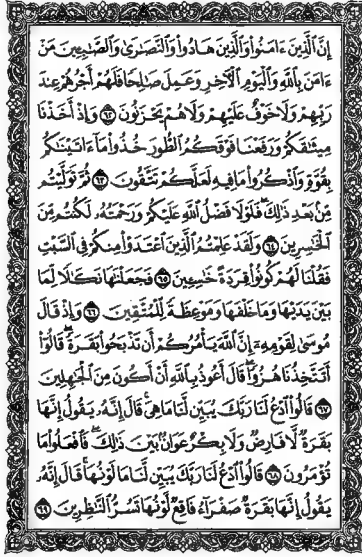 إِنَّ الَّذِينَ ءَامَنُوا وَالَّذِينَ هَادُوا وَالنَّصَٰرَىٰ وَالصَّٰبِـِٔينَ مَنْ
ءَامَنَ بِاللَّهِ وَالْيَوْمِ الْءَاخِرِ وَعَمِلَ صَٰلِحًا فَلَهُمْ أَجْرُهُمْ عِندَ
رَبِّهِمْ وَلَا خَوْفٌ عَلَيْهِمْ وَلَا هُمْ يَحْزَنُونَ ٦٢ وَإِذْ أَخَذْنَا
مِيثَٰقَكُمْ وَرَفَعْنَا فَوْقَكُمُ الطُّورَ خُذُوا مَا ءَاتَيْنَٰكُم
بِقُوَّةٍ وَاذْكُرُوا مَا فِيهِ لَعَلَّكُمْ تَتَّقُونَ ٦٣ ثُمَّ تَوَلَّيْتُم
مِّن بَعْدِ ذَٰلِكَ فَلَوْلَا فَضْلُ اللَّهِ عَلَيْكُمْ وَرَحْمَتُهُ لَكُنتُم مِّنَ
الْخَٰسِرِينَ ٦٤ وَلَقَدْ عَلِمْتُمُ الَّذِينَ اعْتَدَوْا مِنكُمْ فِي السَّبْتِ
فَقُلْنَا لَهُمْ كُونُوا قِرَدَةً خَٰسِـِٔينَ ٦٥ فَجَعَلْنَٰهَا نَكَٰلًا لِّمَا
بَيْنَ يَدَيْهَا وَمَا خَلْفَهَا وَمَوْعِظَةً لِّلْمُتَّقِينَ ٦٦ وَإِذْ قَالَ
مُوسَىٰ لِقَوْمِهِ إِنَّ اللَّهَ يَأْمُرُكُمْ أَن تَذْبَحُوا بَقَرَةً قَالُوا
أَتَتَّخِذُنَا هُزُوًا قَالَ أَعُوذُ بِاللَّهِ أَنْ أَكُونَ مِنَ الْجَٰهِلِينَ
٦٧ قَالُوا ادْعُ لَنَا رَبَّكَ يُبَيِّن لَّنَا مَا هِيَ قَالَ إِنَّهُ يَقُولُ إِنَّهَا
بَقَرَةٌ لَّا فَارِضٌ وَلَا بِكْرٌ عَوَانٌ بَيْنَ ذَٰلِكَ فَافْعَلُوا مَا
تُؤْمَرُونَ ٦٨ قَالُوا ادْعُ لَنَا رَبَّكَ يُبَيِّن لَّنَا مَا لَوْنُهَا قَالَ إِنَّهُ
يَقُولُ إِنَّهَا بَقَرَةٌ صَفْرَاءُ فَاقِعٌ لَّوْنُهَا تَسُرُّ النَّٰظِرِينَ ٦٩